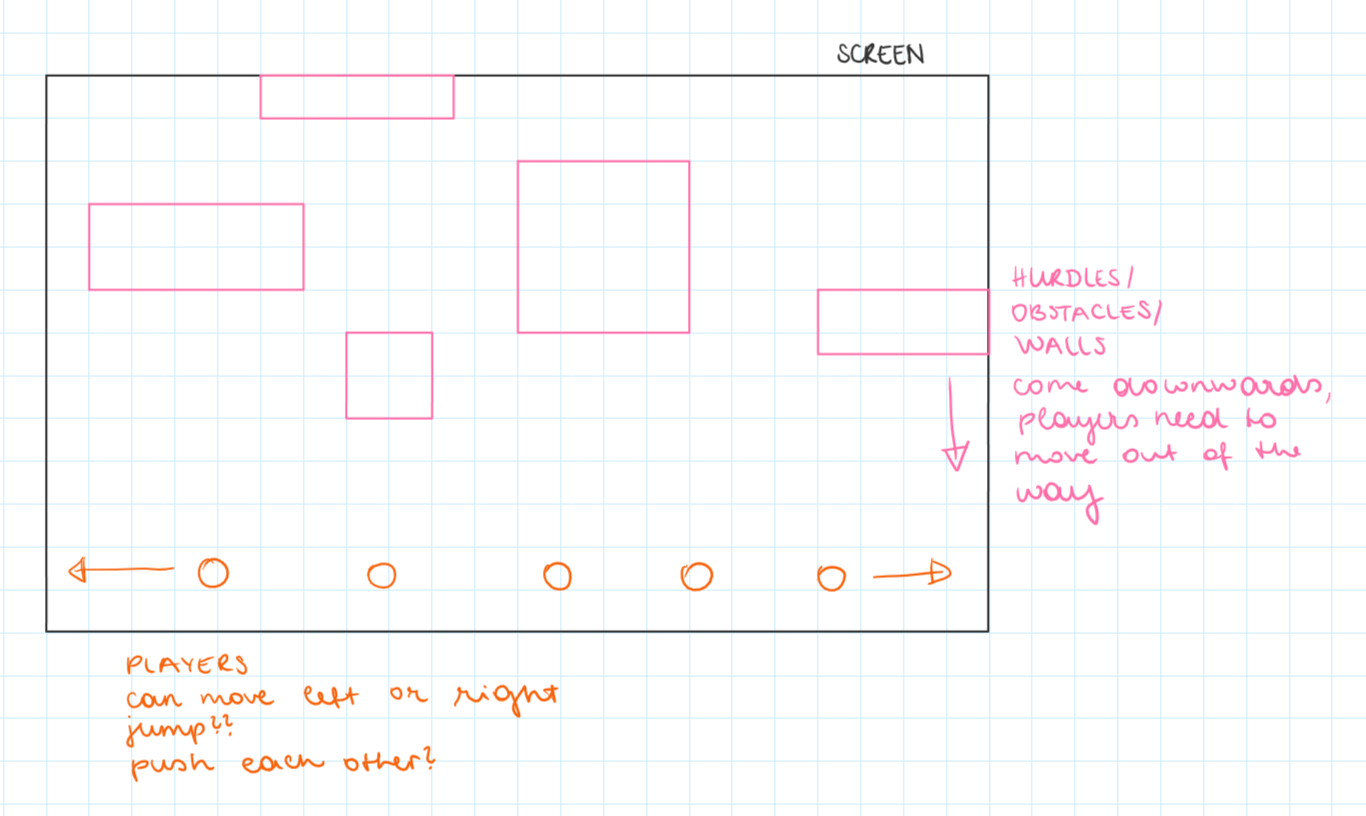 SCREEN
HURDLES/
OBSTACLES/
WALLS
come downwards,
players need to
move out of the
way
PLAYERS
can move left or right
jump??
push each other?